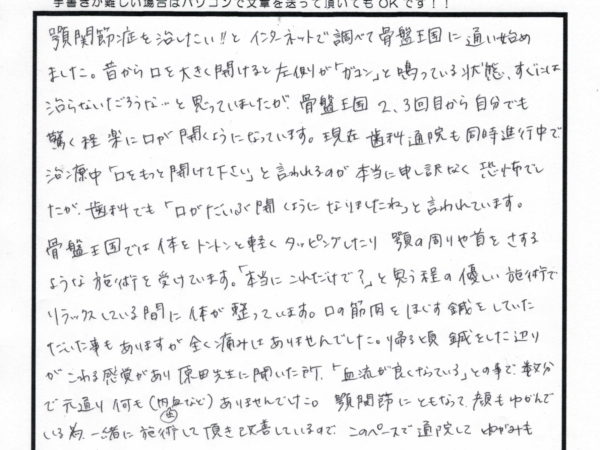 手書きが難しい場合はパソコンで文章を送って頂いてもOKです！！
顎関節症を治したい!!と インターネットで調べて骨盤王国に通い始め
ました。昔から口を大きく開けると左側が「ガコン」と鳴っている状態、すぐには
治らないだろうな…と思っていましたが、骨盤王国 2、3回目から自分でも
驚く程 楽に口が開くようになっています。現在 歯科通院も同時進行中で
治療中「口をもっと開けて下さい」と言われるのが本当に申し訳なく 恐怖でし
たが、歯科でも「口がだいぶ開くようになりましたね」と言われています。
骨盤王国では体をトントンと軽くタッピングしたり 顎の周りや首をさする
ような施術を受けています。「本当にこれだけで？」と思う程の優しい施術で
リラックスしている間に体が整っています。口の筋肉をほぐす鍼をしていた
だいた事もありますが全く痛みはありませんでした。帰る頃 鍼をした辺り
がこわる感覚があり原田先生に聞いた所、「血流が良くなっている」との事で数分
で元通り何も（内出血など）ありませんでした。顎関節にともなって顔もゆがんで
いる為、一緒に施術して頂き改善しているので、このペースで通院して ゆがみも